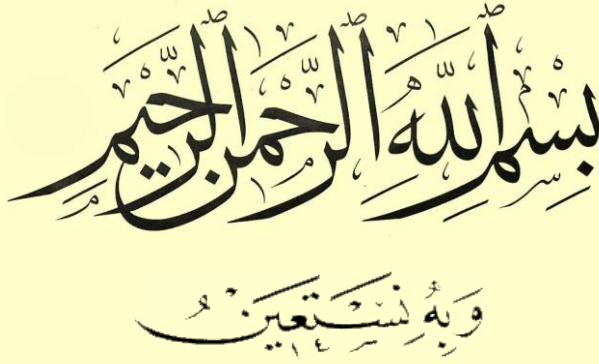 بِسْمِ ٱللَّهِ ٱلرَّحْمَٰنِ ٱلرَّحِيمِ
وَبِهِ نَسْتَعِينُ